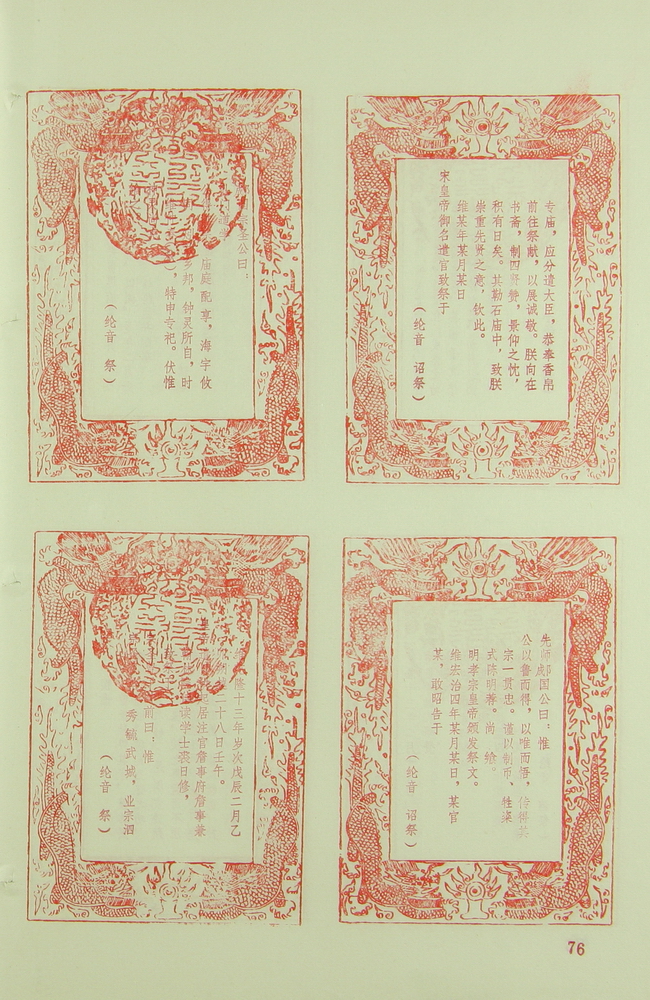 专庙，应分遣大臣，恭奉香帛
前往祭献，以展诚敬。朕向在
书斋，制四贤赞，景仰之忱，
积有日矣。其勒石庙中，致朕
崇重先贤之意，钦此。
维某年某月某日
宋皇帝御名遣官致祭于
（纶音 诏祭）
圣公曰：
庙庭配享，海宇攸
乡邦，钟灵所自，时
，特申专祀。伏惟
（纶音 祭）
先师郕国公曰：惟
公以鲁而得，以唯而悟，传得其
宗一贯忠。谨以制币、牲粢
式陈明荐。尚 飨。
明孝宗皇帝颁发祭文。
维宏治四年某月某日，某官
某，敢昭告于
（纶音 诏祭）
隆十三年岁次戊辰二月乙
二十八日壬午。
起居注官詹事府詹事兼
读学士裘日修，
前曰：惟
秀毓武城，业宗泗
（纶音 祭）
76